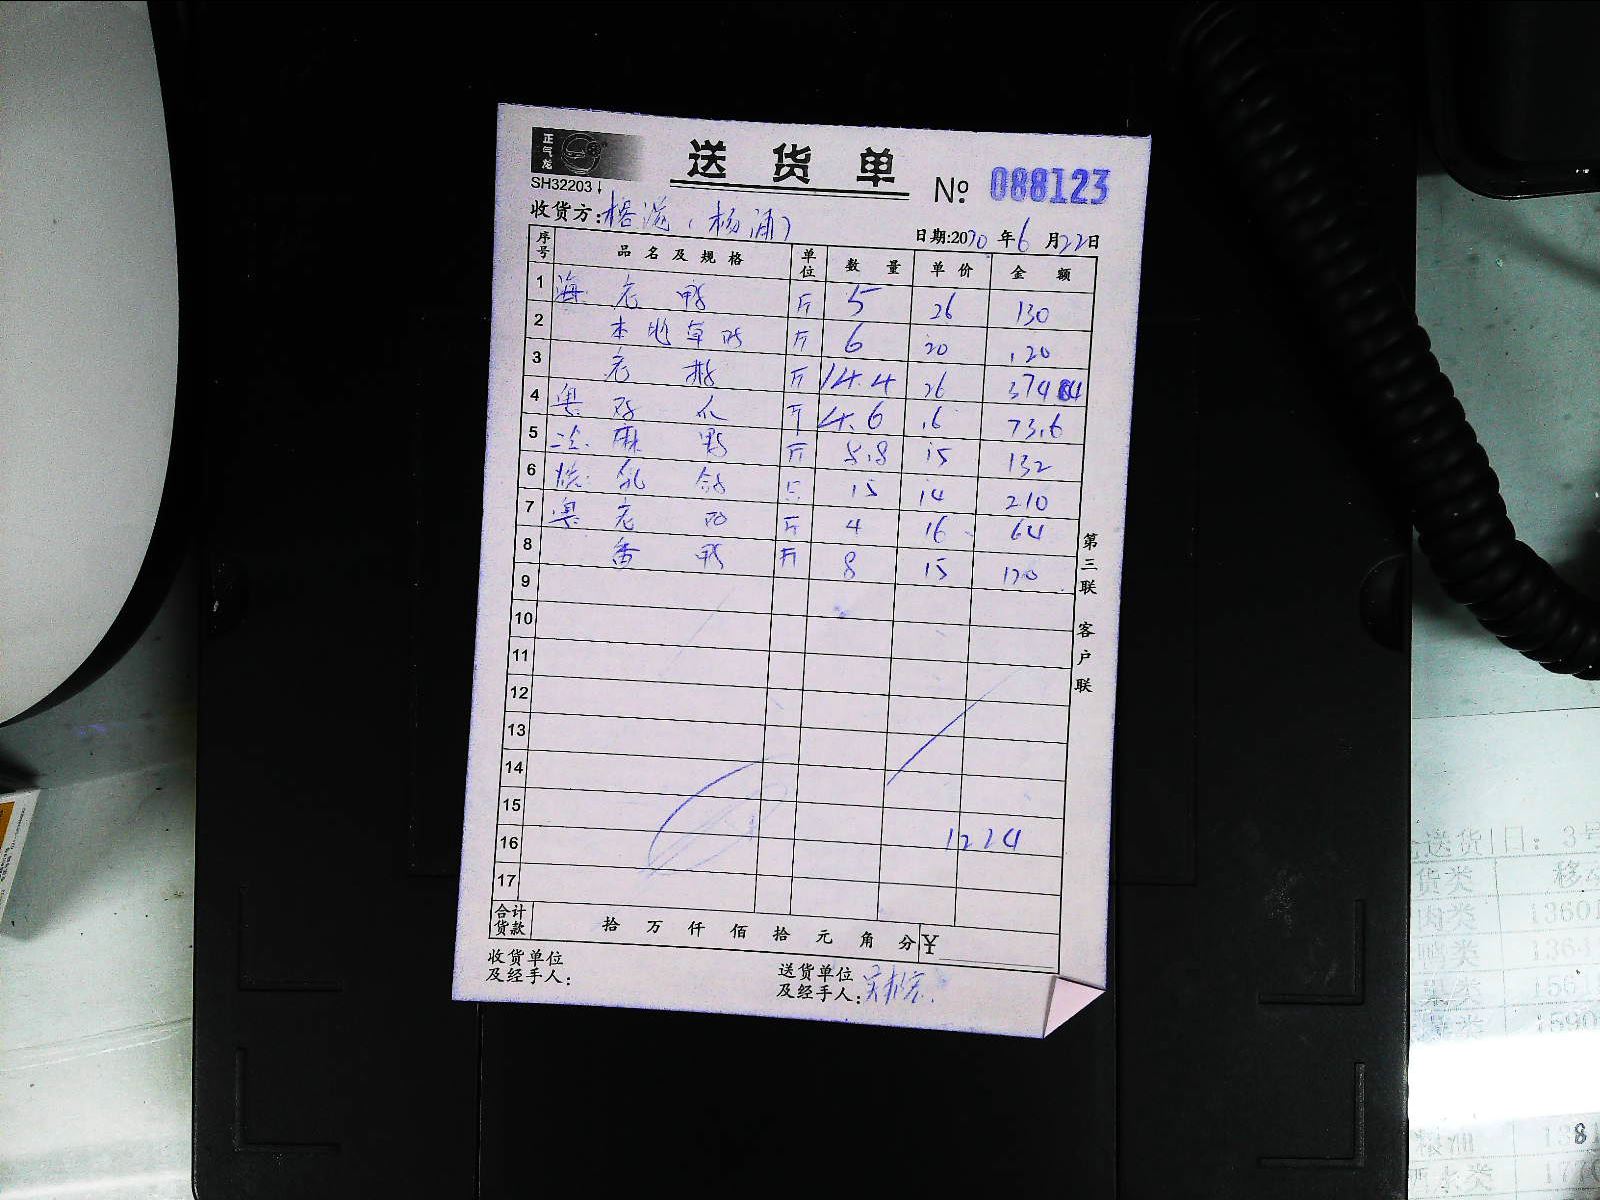 正气龙
送货单
SH32203↓
№ 088123
收货方:榕港(杨浦)
日期:2020年6月22日
序号 品名及规格 单位 数量 单价 金额
1 海 老鸭 斤 5 26 130
2 本地草鸡 斤 6 20 120
3 老鹅 斤 14.4 26 374
4 斤 4.6 16 73.6
5 麻鸭 斤 8.8 15 132
6 乳鸽 15 14 210
7 老 斤 4 16 64
8 番鸭 斤 8 15 120
9
10
11
12
13
14
15
16 1224
17
合计货款 拾 万 仟 佰 拾 元 角 分 ¥
收货单位及经手人:
送货单位及经手人:
第三联 客户联
送货1日: 3号
货类 移
肉类 13601
鸭类
果类
粮油
酒水类